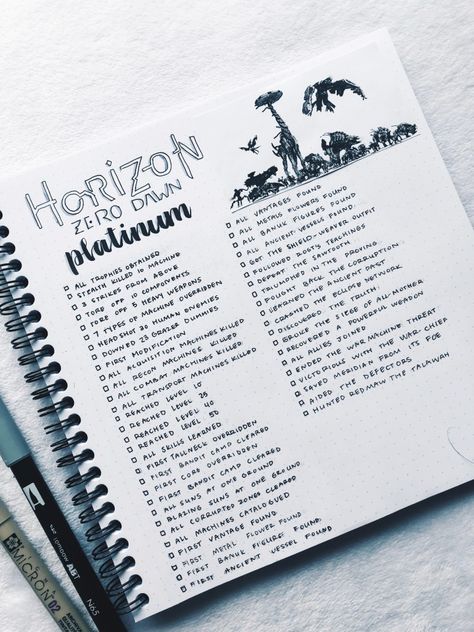 HORIZON
ZERO DAWN
platinum
ALL TROPHIES OBTAINED
STEALTH KILLED 10 MACHINE
3 STRIKES FROM ABOVE
TORE OFF 10 COMPONENTS
TORE OFF 5 HEAVY WEAPONS
7 TYPES OF MACHINE OVERRIDDEN
HEADSHOT 20 HUMAN ENEMIES
DOWNED 23 GRAZER DUMMIES
FIRST MODIFICATION
ALL ACQUISITION MACHINES KILLED
ALL RECON MACHINES KILLED
ALL COMBAT MACHINES KILLED
ALL TRANSPORT MACHINES KILLED
REACHED LEVEL 10
REACHED LEVEL 25
REACHED LEVEL 40
REACHED LEVEL 50
ALL SKILLS LEARNED
FIRST TALLNECK OVERRIDDEN
FIRST BANDIT CAMP CLEARED
FIRST CORE OVERRIDDEN
FIRST BANDIT CAMP CLEARED
ALL SUNS AT ONE GROUND
BLAZING SUNS AT ONE GROUND
ALL CORRUPTED ZONES CLEARED
ALL MACHINES CATALOGUED
FIRST VANTAGE FOUND
FIRST METAL FLOWER FOUND
FIRST BANUK FIGURE FOUND
FIRST ANCIENT VESSEL FOUND
ALL VANTAGES FOUND
ALL METAL FLOWERS FOUND
ALL BANUK FIGURES FOUND
ALL ANCIENT VESSELS FOUND
GOT THE SHIELD-WEAVER OUTFIT
FOLLOWED ROSTS TEACHINGS
DEFEAT THE SAWTOOTH
TRIUMPHED IN THE PROVING
FOUGHT BACK THE CORRUPTION
LEARNED THE ANCIENT PAST
CRASHED THE ECLIPSE NETWORK
DISCOVERED THE TRUTH!
BROKE THE SIEGE OF ALL-MOTHER
RECOVERED A POWERFUL WEAPON
ALL ALLIES JOINED
ENDED THE WAR MACHINE THREAT
VICTORIOUS WITH THE WAR CHIEF
SAVED MERIDIAN FROM ITS FOE
AIDED THE DEFECTORS
HUNTED REDMAW THE TALAWUH
MICRON 02
ABT
N65